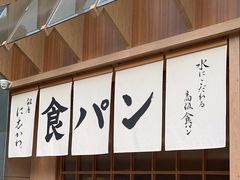 水にこだわる
高級食パン
食パン
銀座
に志かわ